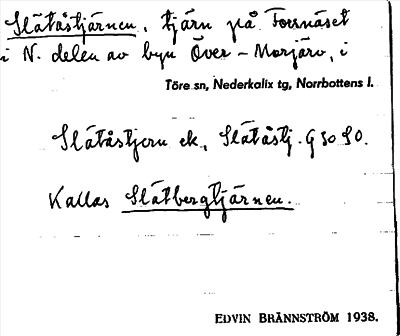 Slåtåstjärnen, tjärn på Forsnäset
i N. delen av byn Över-Morjärv, i
Töre sn, Nederkalix tg, Norrbottens l.
Slåtåstjern ek., Slåtåstj. G 50 50.
Kallas Slåtbergtjärnen.
EDVIN BRÄNNSTRÖM 1938.